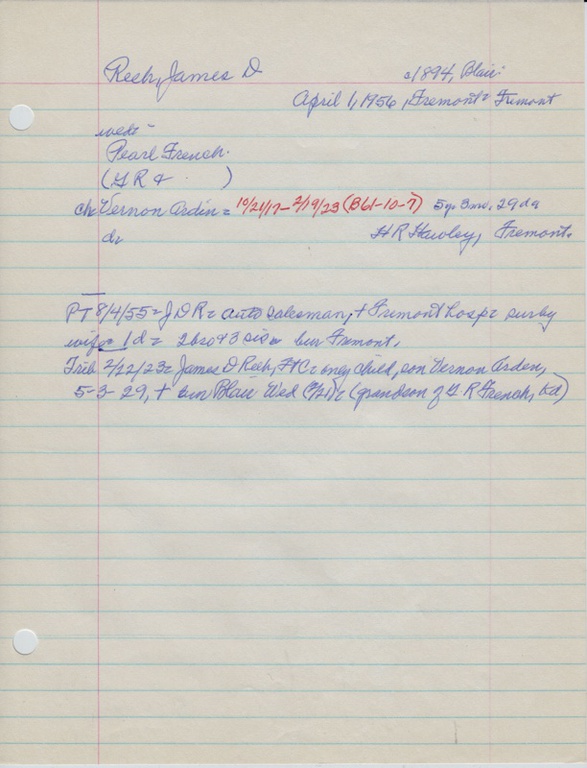 Reeh, James D c1894, Blair
April 1, 1956, Fremont = Fremont
wed =
Pearl French.
(G R & . )
ch Vernon Arden = 10/21/17 - 2/19/23 (B61-10-7) 5y 3mo, 29da
d = H R Hawley, Fremont.
PT 8/4/55 = J D R = auto salesman, + Fremont hosp = surby
wife = 1 d = 2 bro & 3 sis = bur Fremont.
Trib 2/22/23 = James D Reeh, Ft C = only child, son Vernon Arden,
5-3-29, + bur Blair Wed (2/21) = (grandson of G R French, Bd)